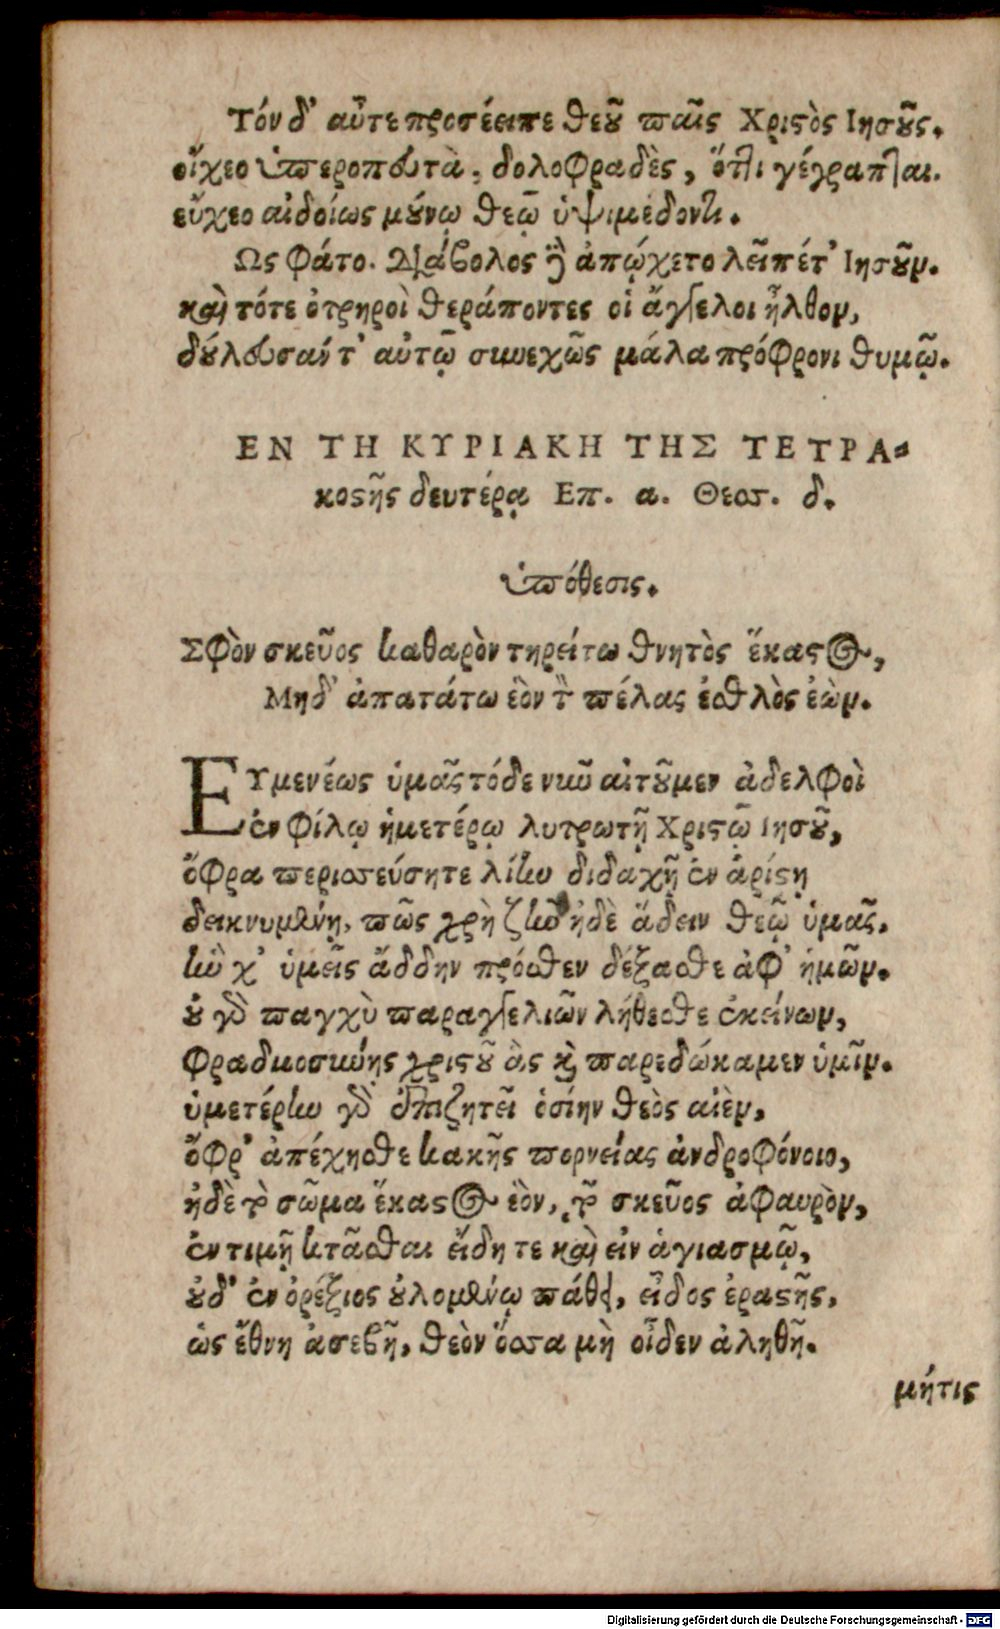 Τόν δ' αὖτε προσέειπε θεοῦ παῖς Χριστὸς Ἰησοῦς.
οἴχεο ὑπεροπευτὰ, δολοφραδὲς, ὅτι γέγραπται.
εὔχεο αἰδοίως μούνῳ θεῷ ὑψιμέδοντι.
Ως φάτο. Διάβολος δὲ ἀπῴχετο λεῖπέ τ' Ἰησοῦν.
καὶ τότε ὀτρηροὶ θεράποντες οἱ ἄγγελοι ἦλθον,
δούλευσάν τ' αὐτῷ συνεχῶς μάλα πρόφρονι θυμῷ.
ΕΝ ΤΗ ΚΥΡΙΑΚΗ ΤΗΣ ΤΕΤΡΑ-
κοστῆς δευτέρᾳ Επ. α. Θεσσ. δ.
ὑπόθεσις.
Σφὸν σκεῦος καθαρὸν τηρείτω θνητὸς ἕκαστος,
Μηδ' ἀπατάτω ἑὸν τὸν πέλας ἐσθλὸς ἐὼν.
ΕΥμενέως ὑμᾶς τόδε νῦν αἰτοῦμεν ἀδελφοὶ
ἐν φίλῳ ἡμετέρῳ λυτρωτῇ Χριστῷ Ἰησοῦ,
ὄφρα περισσεύσητε λίην διδαχῇ ἐν ἀρίστῃ
δεικνυμένῃ, πῶς χρὴ ζῆν ἠδὲ ἅδειν θεῷ ὑμᾶς.
ἣν χ' ὑμεῖς ἄδδην πρόσθεν δέξασθε ἀφ' ἡμῶν.
οὐ γὰρ παγχὺ παραγγελιῶν λήθεσθε ἐκείνων,
φραδμοσύνης χριστοῦ ἃς καὶ παρεδώκαμεν ὑμῖν.
ὑμετέρην γὰρ ἐπιζητεῖ ὁσίην θεὸς αἰὲν,
ὄφρ' ἀπέχησθε κακῆς πορνείας ἀνδροφόνοιο,
ἠδὲ τὸ σῶμα ἕκαστος ἑὸν, τὸ σκεῦος ἀφαυρὸν,
ἐν τιμῇ κτᾶσθαι εἴδῃ τε καὶ εἰν ἁγιασμῷ,
οὐδ' ἐν ὀρέξιος οὐλομένῳ πάθει, εἶδος ἐραστῆς,
ὡς ἔθνη ἀσεβῆ, θεὸν ὅσσα μὴ οἶδεν ἀληθῆ.
μήτις
Digitalisierung gefördert durch die Deutsche Forschungsgemeinschaft - DFG